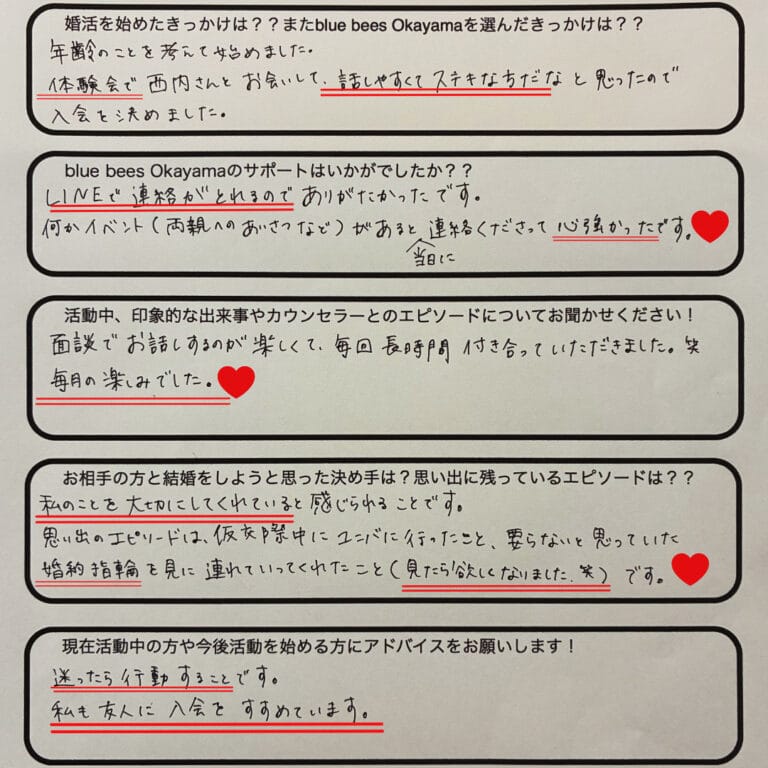 婚活を始めたきっかけは？？またblue bees Okayamaを選んだきっかけは？？
年齢のことを考えて始めました。
体験会で西内さんとお会いして、話しやすくてステキな方だなと思ったので
入会を決めました。
blue bees Okayamaのサポートはいかがでしたか？？
LINEで連絡がとれるのでありがたかったです。
何かイベント（両親へのあいさつなど）があると連絡くださって心強かったです。
当日に
活動中、印象的な出来事やカウンセラーとのエピソードについてお聞かせください！
面談でお話しするのが楽しくて、毎回長時間付き合っていただきました。笑
毎月の楽しみでした。
お相手の方と結婚をしようと思った決め手は？思い出に残っているエピソードは？？
私のことを大切にしてくれていると感じられることです。
思い出のエピソードは、仮交際中にユニバに行ったこと、要らないと思っていた
婚約指輪を見に連れていってくれたこと（見たら欲しくなりました、笑）です。
現在活動中の方や今後活動を始める方にアドバイスをお願いします！
迷ったら行動することです。
私も友人に入会をすすめています。